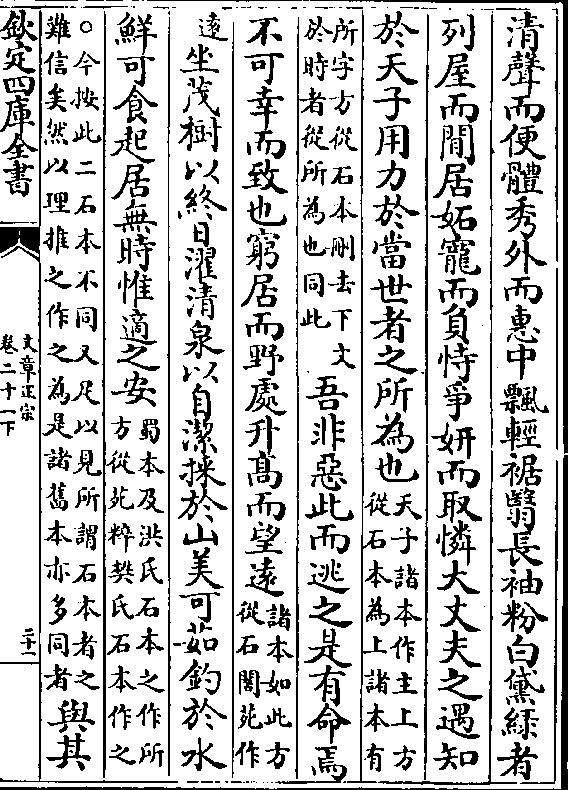 清聲而便體秀外而惠中飄輕裾翳長袖粉白黛綠者
列屋而閒居妬寵而負恃爭妍而取憐大丈夫之遇知
於天子用力於當世者之所為也天子諸本作主上方
從石本為上諸本有
所字方從石本刪去下文
於時者從所為也同此吾非惡此而逃之是有命焉
不可幸而致也窮居而野處升髙而望遠諸本如此方
從石閣苑作
逺坐茂樹以終日濯清泉以自潔採於山美可茹釣於水
鮮可食起居無時惟適之安蜀本及洪氏石本之作所
方從苑粹樊氏石本作之
○今按此二石本不同又足以見所謂石本者之
難信矣然以理推之作之為是諸舊本亦多同者與其
欽定四庫全書
文章正宗
卷二十一下
二十一